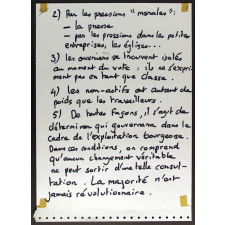 2) Par les pressions "morales":
– la presse
– par les pressions dans les petites
entreprises, les églises...
3) les ouvriers se trouvent isolés
au moment du vote : ils ne s'expri-
ment pas en tant que classe.
4) les non-actifs ont autant de
poids que les travailleurs.
5) De toutes façons, il s'agit de
déterminer qui gouvernera dans le
cadre de l'exploitation bourgeoise.
Dans ces conditions, on comprend
qu'aucun changement véritable
ne peut sortir d'une telle consul-
tation. La majorité n'est
jamais révolutionnaire.